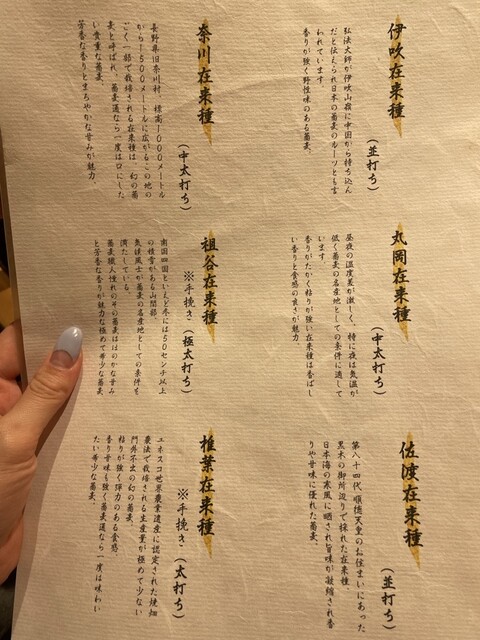 伊吹在来種
(並打ち)
弘法大師が伊吹山麓に中国から持ち込ん
だと伝えられ日本の蕎麦のルーツとも言
われています
香りが強く野性味のある蕎麦。
奈川在来種
(中太打ち)
長野県旧奈川村、標高1000メートル
から1500メートルに広がるこの地の
ごく一部で栽培される在来種は、幻の蕎
麦と呼ばれ、蕎麦通なら一度は口にした
い貴重な蕎麦。
芳香な香りとまろやかな甘みが魅力。
丸岡在来種
(中太打ち)
昼夜の温度差が激しく、特に夜は気温が
低く蕎麦の名産地としての条件に適して
います。
香りがたかく粘りが強い在来種は香ばし
い香りと食感の良さが魅力。
祖谷在来種
※手挽き(極太打ち)
南国四国といえど冬には50センチ以上
の積雪がある山間部。
気候風土が蕎麦の名産地としての条件を
満たしている。
蕎麦職人憧れのその蕎麦はほのかな甘み
と芳香な香りが魅力な極めて希少な蕎麦
佐渡在来種
(並打ち)
第八十四代 順徳天皇のお住まいにあった
黒木の御所辺りで採れた在来種、
日本海の寒風に晒され旨味が凝縮され香
りや甘味に優れた蕎麦。
椎葉在来種
※手挽き(太打ち)
ユネスコ世界農業遺産に認定された焼畑
農法で栽培される生産量が極めて少ない
門外不出の幻の蕎麦。
粘りが強く弾力のある食感、
香り甘味も強く蕎麦通なら一度は味わい
たい希少な蕎麦。